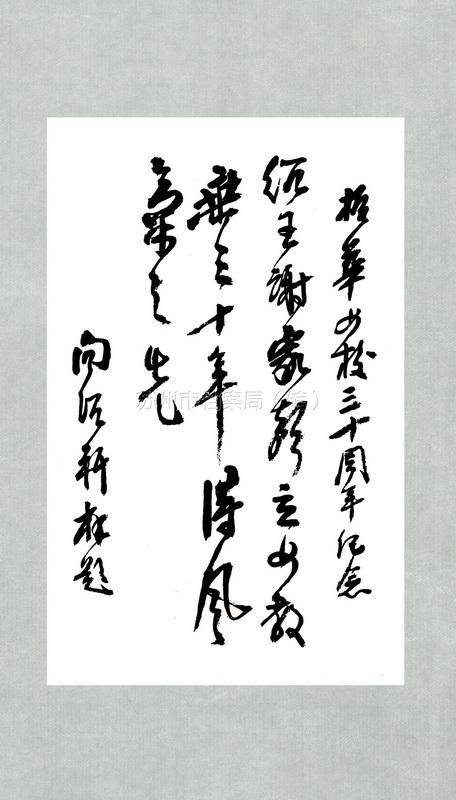 振華女校三十周年纪念
紹王謝家聲立女教
垂三十年得風
氣之先
向紹軒題
苏州市档案局（馆）